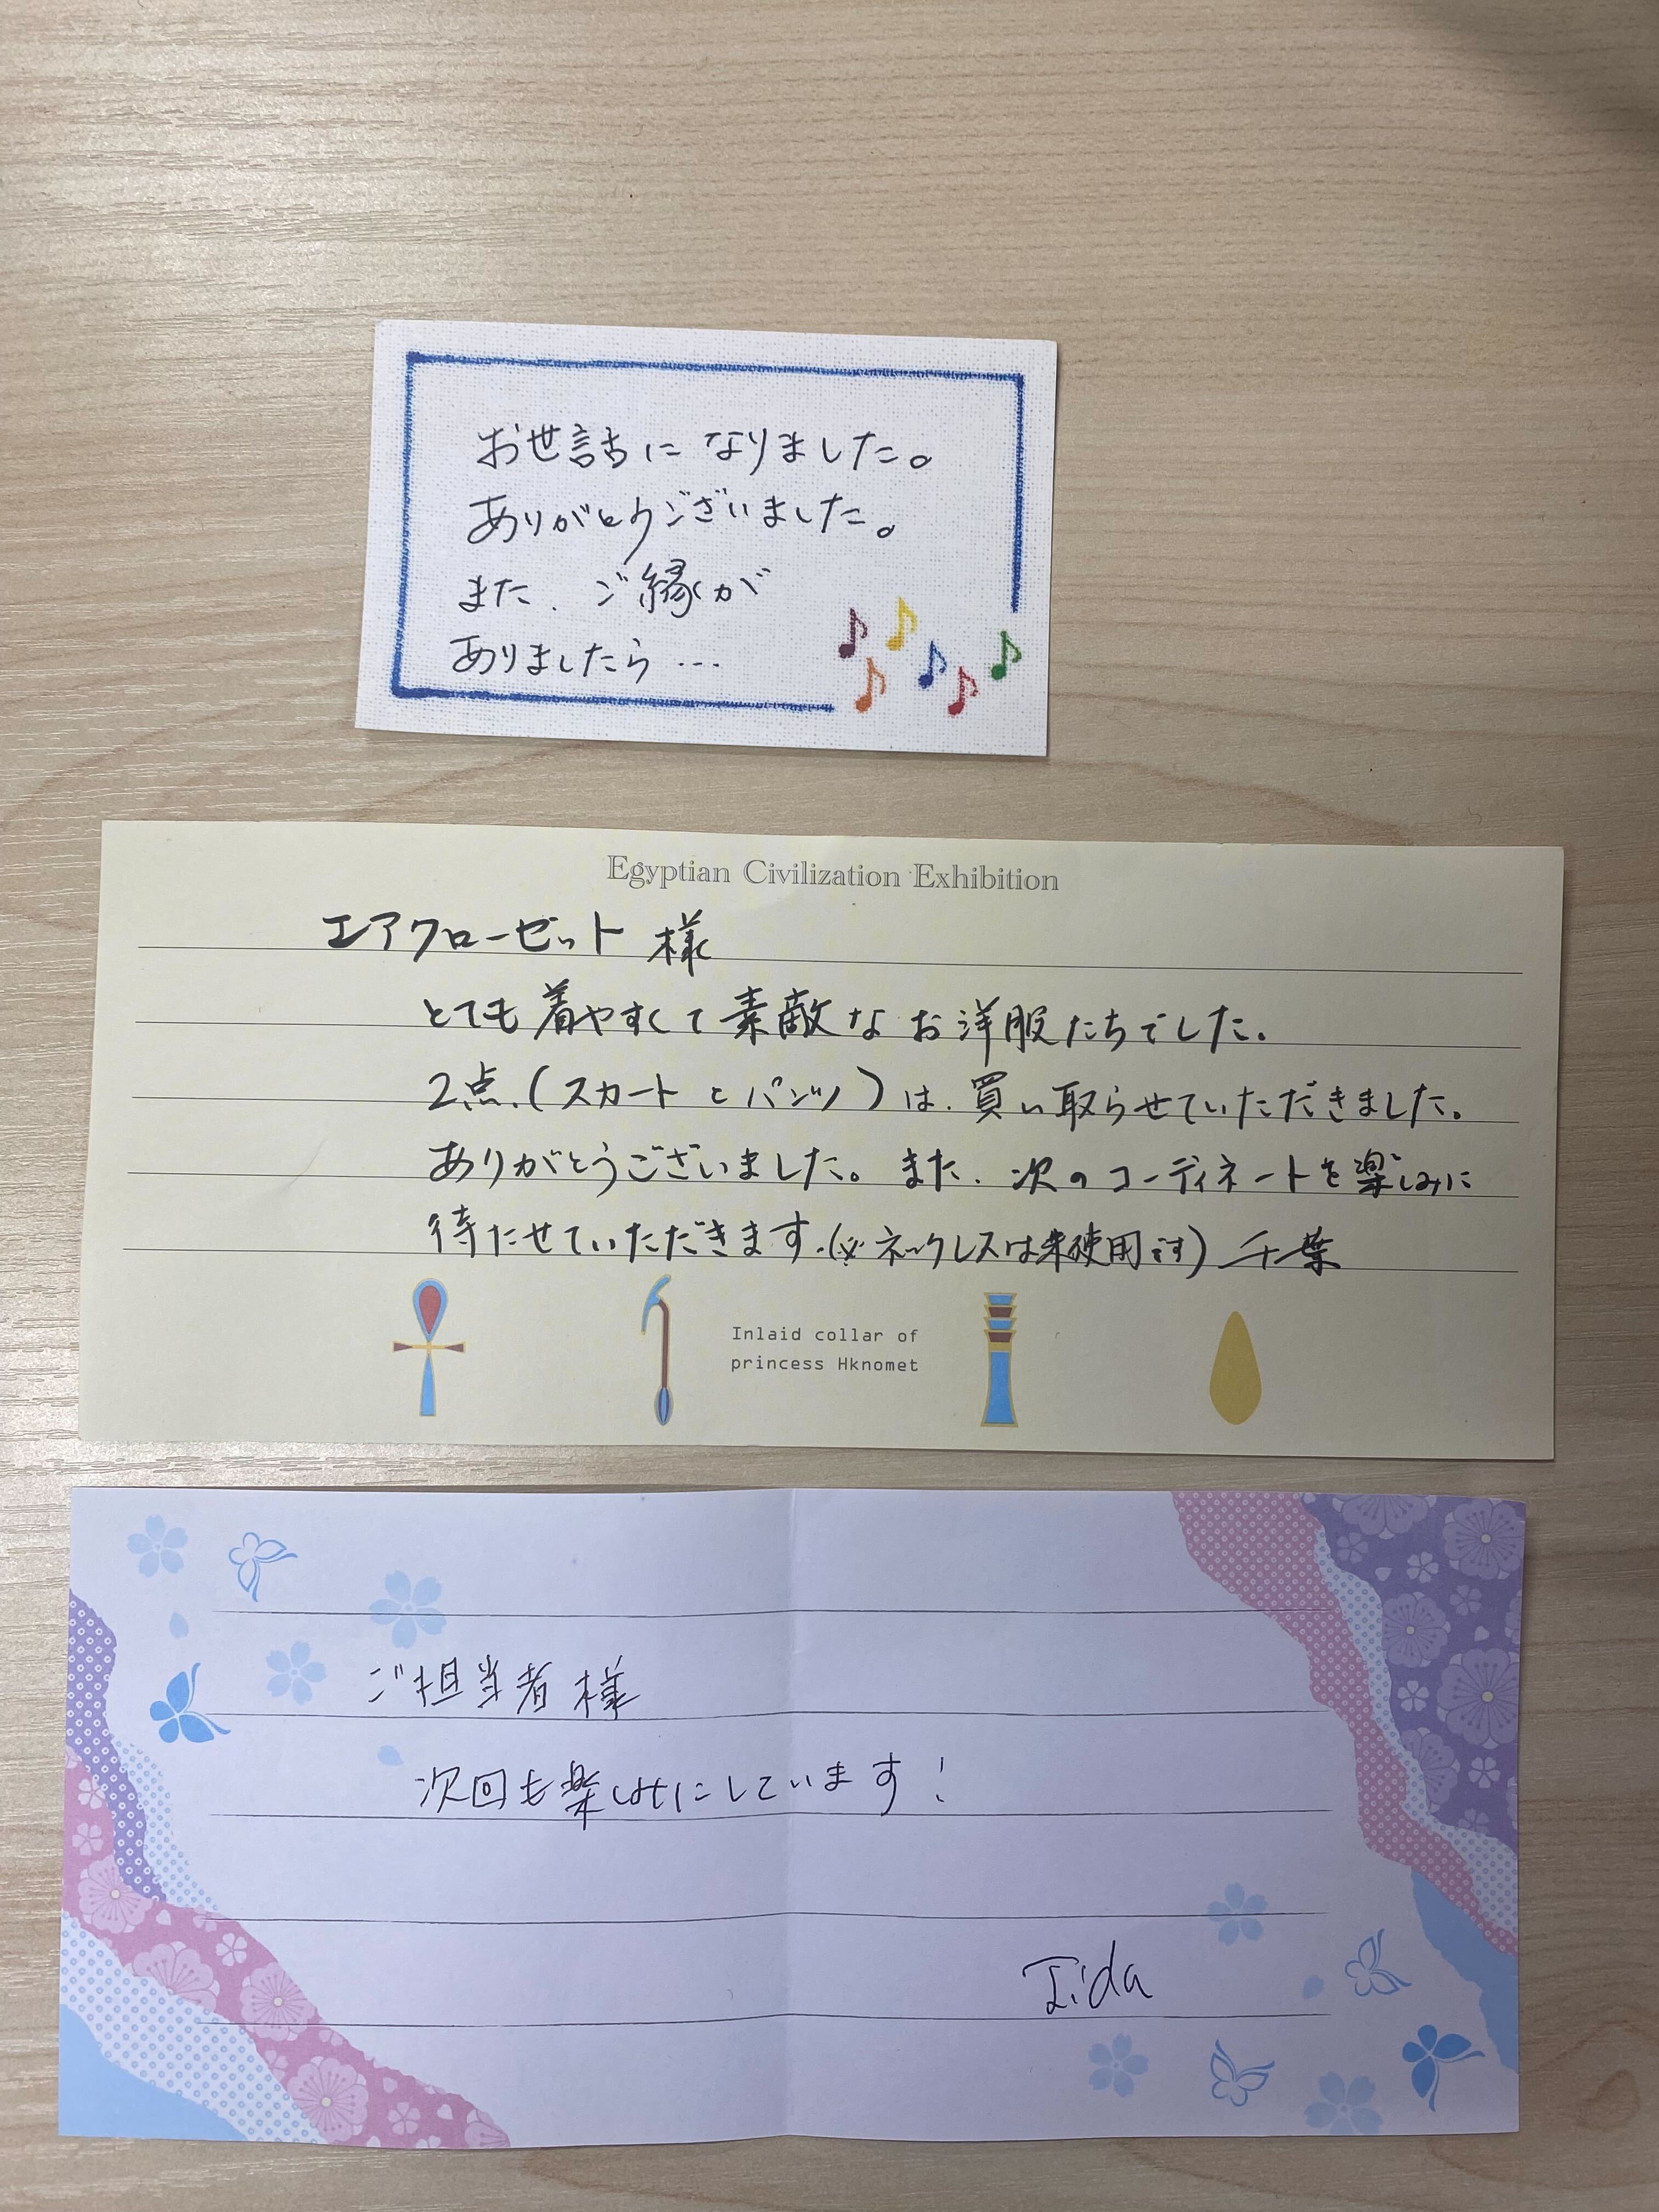 お世話になりました。
ありがとうございました。
また、ご縁が
ありましたら…
Egyptian Civilization Exhibition
エアクローゼット 様
とても着やすくて素敵なお洋服たちでした。
2点、(スカートとパンツ)は、買い取らせていただきました。
ありがとうございました。また、次のコーディネートを楽しみに
待たせていただきます。(※ネックレスは未使用です) 千葉
Inlaid collar of
princess Hknomet
ご担当者様
次回も楽しみにしています!
Iida